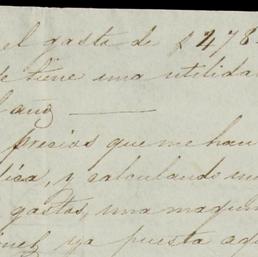 el gasto de $478
tiene una utilida
año
precios que me han
y calculando
gastos, una maqui
ya puesta aq